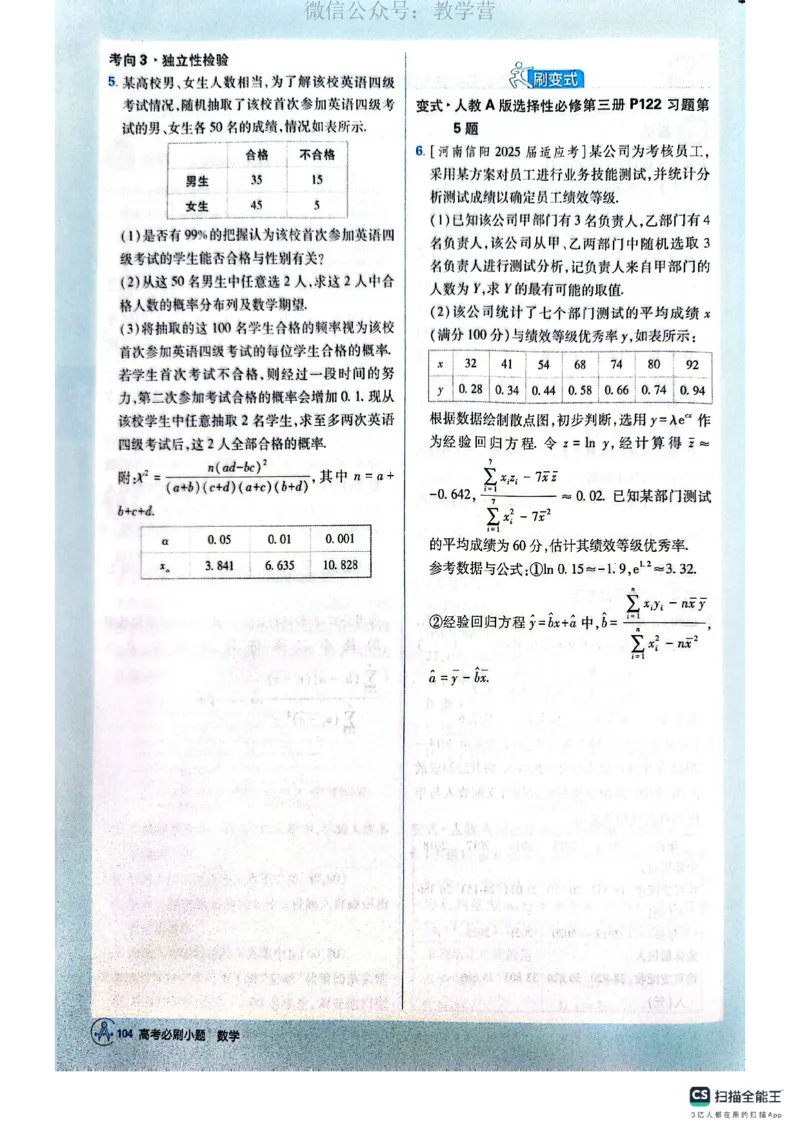 微信公众号：教学营
考向3·独立性检验
5. 某高校男、女生人数相当,为了解该校英语四级
考试情况,随机抽取了该校首次参加英语四级考
试的男、女生各50名的成绩,情况如表所示.
合格 不合格
男生 35 15
女生 45 5
(1)是否有99%的把握认为该校首次参加英语四
级考试的学生能否合格与性别有关?
(2)从这50名男生中任意选2人,求这2人中合
格人数的概率分布列及数学期望.
(3)将抽取的这100名学生合格的频率视为该校
首次参加英语四级考试的每位学生合格的概率.
若学生首次考试不合格,则经过一段时间的努
力,第二次参加考试合格的概率会增加0.1.现从
该校学生中任意抽取2名学生,求至多两次英语
四级考试后,这2人全部合格的概率.
附:χ²=n(ad-bc)²/((a+b)(c+d)(a+c)(b+d)),其中n=a+
b+c+d.
α 0.05 0.01 0.001
xα 3.841 6.635 10.828
刷变式
变式·人教A版选择性必修第三册P122习题第
5题
6. [河南信阳2025届适应考]某公司为考核员工,
采用某方案对员工进行业务技能测试,并统计分
析测试成绩以确定员工绩效等级.
(1)已知该公司甲部门有3名负责人,乙部门有4
名负责人,该公司从甲、乙两部门中随机选取3
名负责人进行测试分析,记负责人来自甲部门的
人数为Y,求Y的最有可能的取值.
(2)该公司统计了七个部门测试的平均成绩x
(满分100分)与绩效等级优秀率y,如表所示:
x 32 41 54 68 74 80 92
y 0.28 0.34 0.44 0.58 0.66 0.74 0.94
根据数据绘制散点图,初步判断,选用y=λe^(cx)作
为经验回归方程.令z=ln y,经计算得z̄≈
-0.642,(∑_{i=1}^{7}x_i z_i-7x̄z̄)/(∑_{i=1}^{7}x_i²-7x̄²)≈0.02.已知某部门测试
的平均成绩为60分,估计其绩效等级优秀率.
参考数据与公式:①ln 0.15≈-1.9,e^1.2≈3.32.
②经验回归方程ŷ=b̂x+â中,b̂=(∑_{i=1}^{n}x_i y_i-nx̄ȳ)/(∑_{i=1}^{n}x_i²-nx̄²),
â=ȳ-b̂x̄.
104 高考必刷小题 数学
CS 扫描全能王
3亿人都在用的扫描App